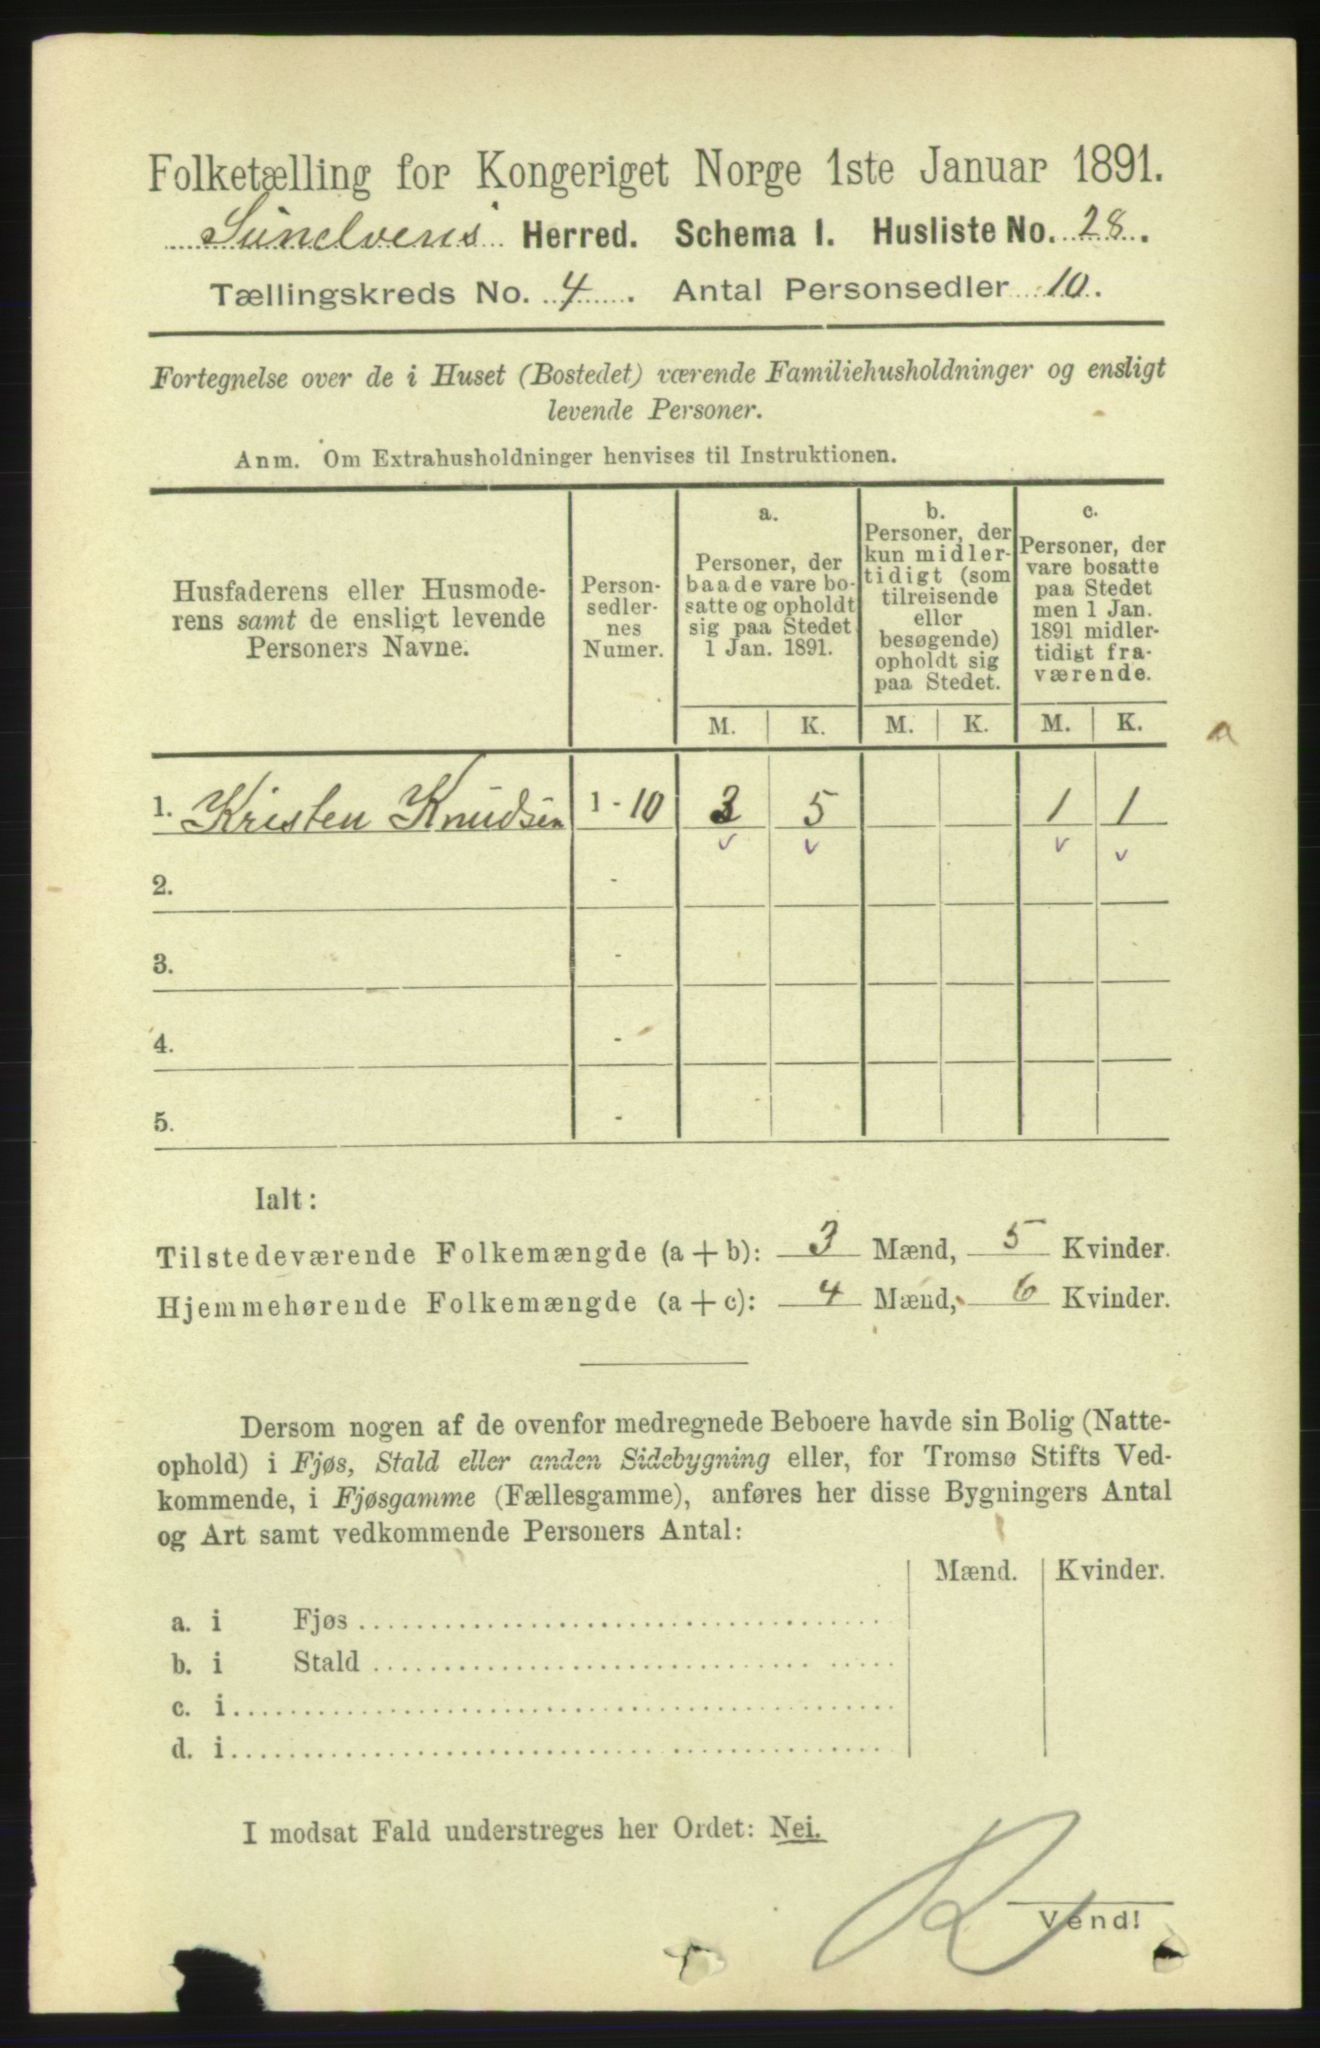 Folketælling for Kongeriget Norge 1ste Januar 1891.
Sunelvens Herred. Schema I. Husliste No. 28.
Tællingskreds No. 4. Antal Personsedler 10.
Fortegnelse over de i Huset (Bostedet) værende Familiehusholdninger og ensligt
levende Personer.
Anm. Om Extrahusholdninger henvises til Instruktionen.
Husfaderens eller Husmode-
rens samt de ensligt levende
Personers Navne.
Person-
sedler-
nes
Numer.
a.
Personer, der
baade vare bo-
satte og opholdt
sig paa Stedet
1 Jan. 1891.
b.
Personer, der
kun midler-
tidigt (som
tilreisende
eller
besøgende)
opholdt sig
paa Stedet.
c.
Personer, der
vare bosatte
paa Stedet
men 1 Jan.
1891 midler-
tidigt fra-
værende.
M. K. M. K. M. K.
1. Kristen Knudsen 1 - 10 3 5 1 1
2. -
3. -
4. -
5. -
Ialt:
Tilstedeværende Folkemængde (a + b): 3 Mænd, 5 Kvinder.
Hjemmehørende Folkemængde (a + c): 4 Mænd, 6 Kvinder.
Dersom nogen af de ovenfor medregnede Beboere havde sin Bolig (Natte-
ophold) i Fjøs, Stald eller anden Sidebygning eller, for Tromsø Stifts Ved-
kommende, i Fjøsgamme (Fællesgamme), anføres her disse Bygningers Antal
og Art samt vedkommende Personers Antal:
Mænd. Kvinder.
a. i Fjøs
b. i Stald
c. i
d. i
I modsat Fald understreges her Ordet: Nei.
Vend!